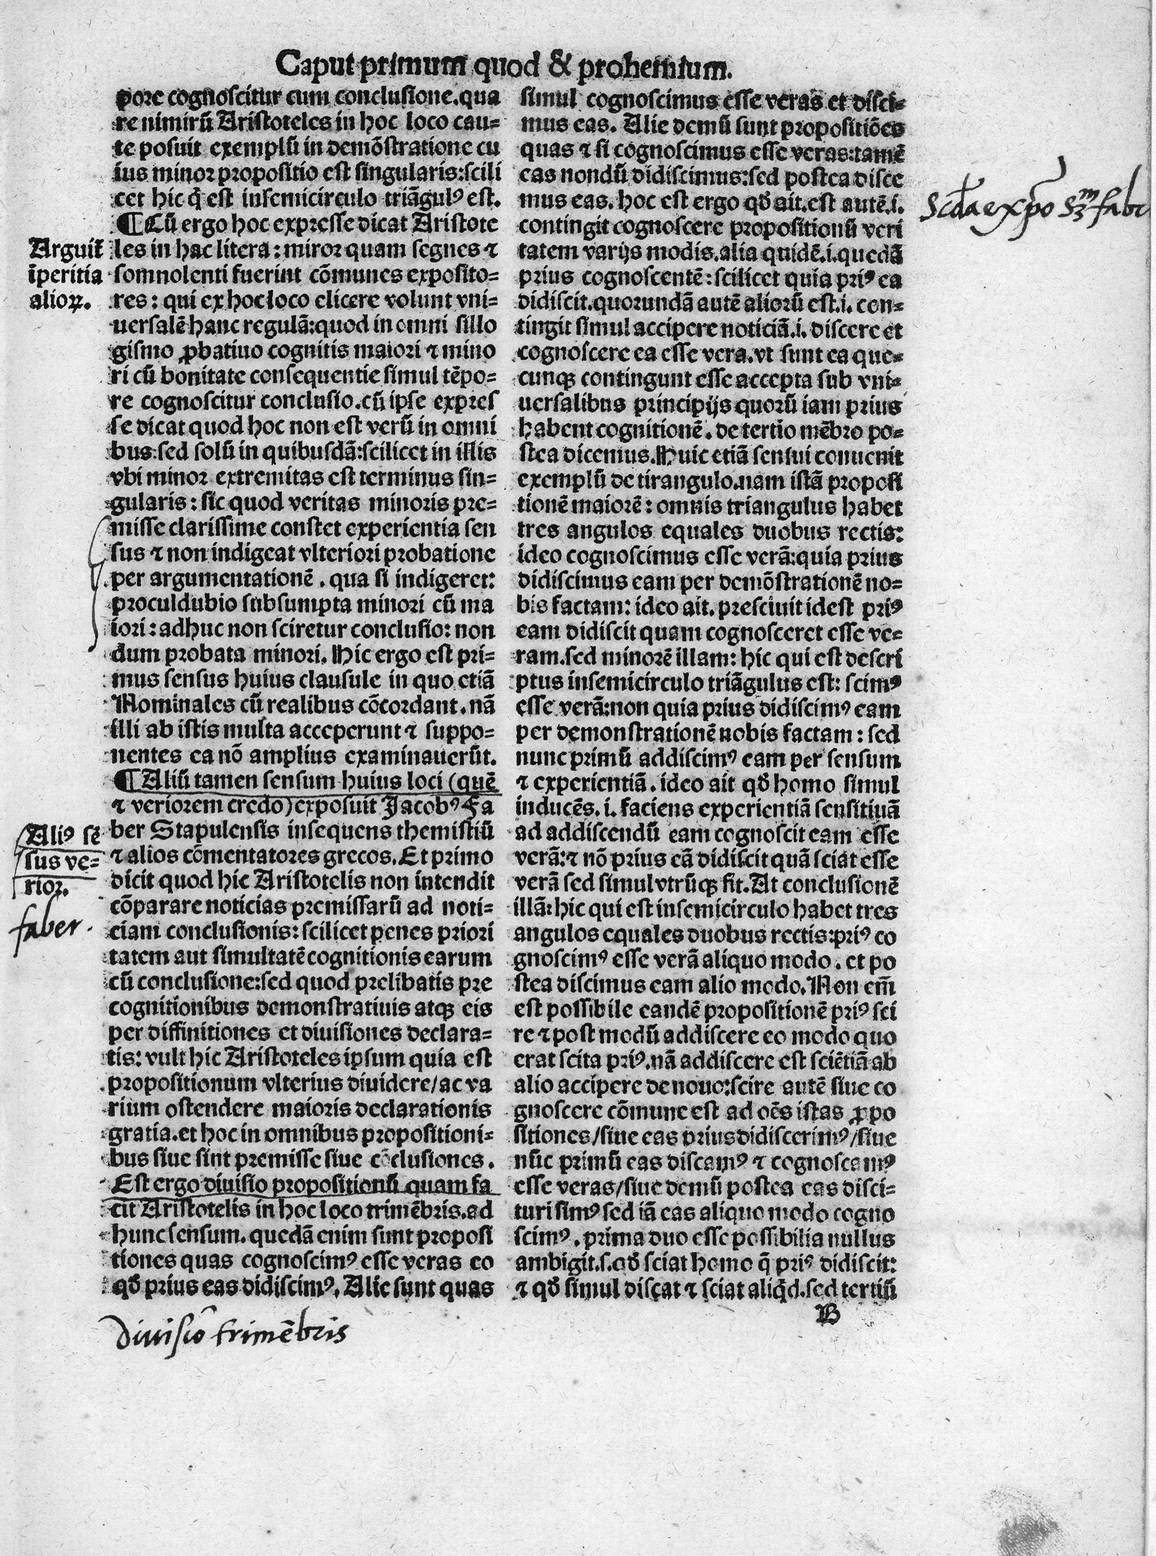 Caput primum quod & prohemium.
pore cognoscitur cum conclusione. qua
re nimirū Aristoteles in hoc loco cau-
te posuit exemplū in demōstratione cu
ius minor propositio est singularis: scili
cet hic q̄ est insemicirculo triāgulꝰ est.
¶ Cū ergo hoc expresse dicat Aristote
les in hac litera: miror quam segnes ⁊
somnolenti fuerint cōmunes exposito-
res: qui ex hoc loco elicere volunt vni-
uersalē hanc regulā: quod in omni sillo
gismo ꝓbatiuo cognitis maiori ⁊ mino
ri cū bonitate consequentie simul tēpo-
re cognoscitur conclusio. cū ipse expres
se dicat quod hoc non est verū in omni
bus: sed solū in quibusdā: scilicet in illis
vbi minor extremitas est terminus sin-
gularis: sic quod veritas minoris pre-
misse clarissime constet experientia sen
sus ⁊ non indigeat vlteriori probatione
per argumentationē. qua si indigeret:
proculdubio subsumpta minori cū ma
iori: adhuc non sciretur conclusio: non
dum probata minori. Hic ergo est pri-
mus sensus huius clausule in quo etiā
Nominales cū realibus cōcordant. nā
illi ab istis multa acceperunt ⁊ suppo-
nentes ea nō amplius examinauerūt.
¶ Aliū tamen sensum huius loci (quē
⁊ veriorem credo) exposuit Jacobꝰ Fa
ber Stapulensis insequens themistiū
⁊ alios cōmentatores grecos. Et primo
dicit quod hic Aristotelis non intendit
cōparare noticias premissarū ad noti-
ciam conclusionis: scilicet penes priori
tatem aut simultatē cognitionis earum
cū conclusione: sed quod prelibatis pre
cognitionibus demonstratiuis atqꝫ eis
per diffinitiones et diuisiones declara-
tis: vult hic Aristoteles ipsum quia est
propositionum vlterius diuidere/ ac va
rium ostendere maioris declarationis
gratia. et hoc in omnibus propositioni-
bus siue sint premisse siue cōclusiones.
Est ergo diuisio propositionū quam fa
cit Aristotelis in hoc loco trimēbris. ad
hunc sensum. quedā enim sunt proposi
tiones quas cognoscimꝰ esse veras eo
qđ prius eas didiscimꝰ. Alie sunt quas
Arguit̄
īperitia
alioꝝ.
Aliꝰ sē
sus ve-
rioꝝ.
faber.
Diuisio trimēbris
simul cognoscimus esse veras et disci-
mus eas. Alie demū sunt propositiōes
quas ⁊ si cognoscimus esse veras: tamē
eas nondū didiscimus: sed postea disce
mus eas. hoc est ergo qđ ait. est autē. i.
contingit cognoscere propositionū veri
tatem varijs modis. alia quidē. i. quedā
prius cognoscentē: scilicet quia priꝰ ea
didiscit. quorundā autē aliorū est. i. con-
tingit simul accipere noticiā. i. discere et
cognoscere ea esse vera. vt sunt ea que-
cunqꝫ contingunt esse accepta sub vni-
uersalibus principijs quorū iam prius
habent cognitionē. de tertio mēbro po-
stea dicemus. Huic etiā sensui conuenit
exemplū de tirangulo. nam istā proposi
tionē maiorē: omnis triangulus habet
tres angulos equales duobus rectis:
ideo cognoscimus esse verā: quia prius
didiscimus eam per demōstrationē no-
bis factam: ideo ait. presciuit idest priꝰ
eam didiscit quam cognosceret esse ve-
ram. sed minorē illam: hic qui est descri
ptus insemicirculo triāgulus est: scimꝰ
esse verā: non quia prius didiscimꝰ eam
per demonstrationē nobis factam: sed
nunc primū addiscimꝰ eam per sensum
⁊ experientiā. ideo ait qđ homo simul
inducēs. i. faciens experientiā sensitiuā
ad addiscendū eam cognoscit eam esse
verā: ⁊ nō prius eā didiscit quā sciat esse
verā sed simul vtrūqꝫ fit. At conclusionē
illā: hic qui est insemicirculo habet tres
angulos equales duobus rectis: priꝰ co
gnoscimꝰ esse verā aliquo modo. et po
stea discimus eam alio modo. Non em̄
est possibile eandē propositionē priꝰ sci
re ⁊ post modū addiscere eo modo quo
erat scita priꝰ. nā addiscere est sciētiā ab
alio accipere de nouo: scire autē siue co
gnoscere cōmune est ad oēs istas ꝓpo
sitiones/ siue eas prius didiscerimꝰ/ siue
nūc primū eas discamꝰ ⁊ cognoscamꝰ
esse veras/ siue demū postea eas disci-
turi simꝰ sed iā eas aliquo modo cogno
scimꝰ. prima duo esse possibilia nullus
ambigit. s. qđ sciat homo q̄ priꝰ didiscit:
⁊ qđ simul discat ⁊ sciat aliqđ. sed tertiū
B